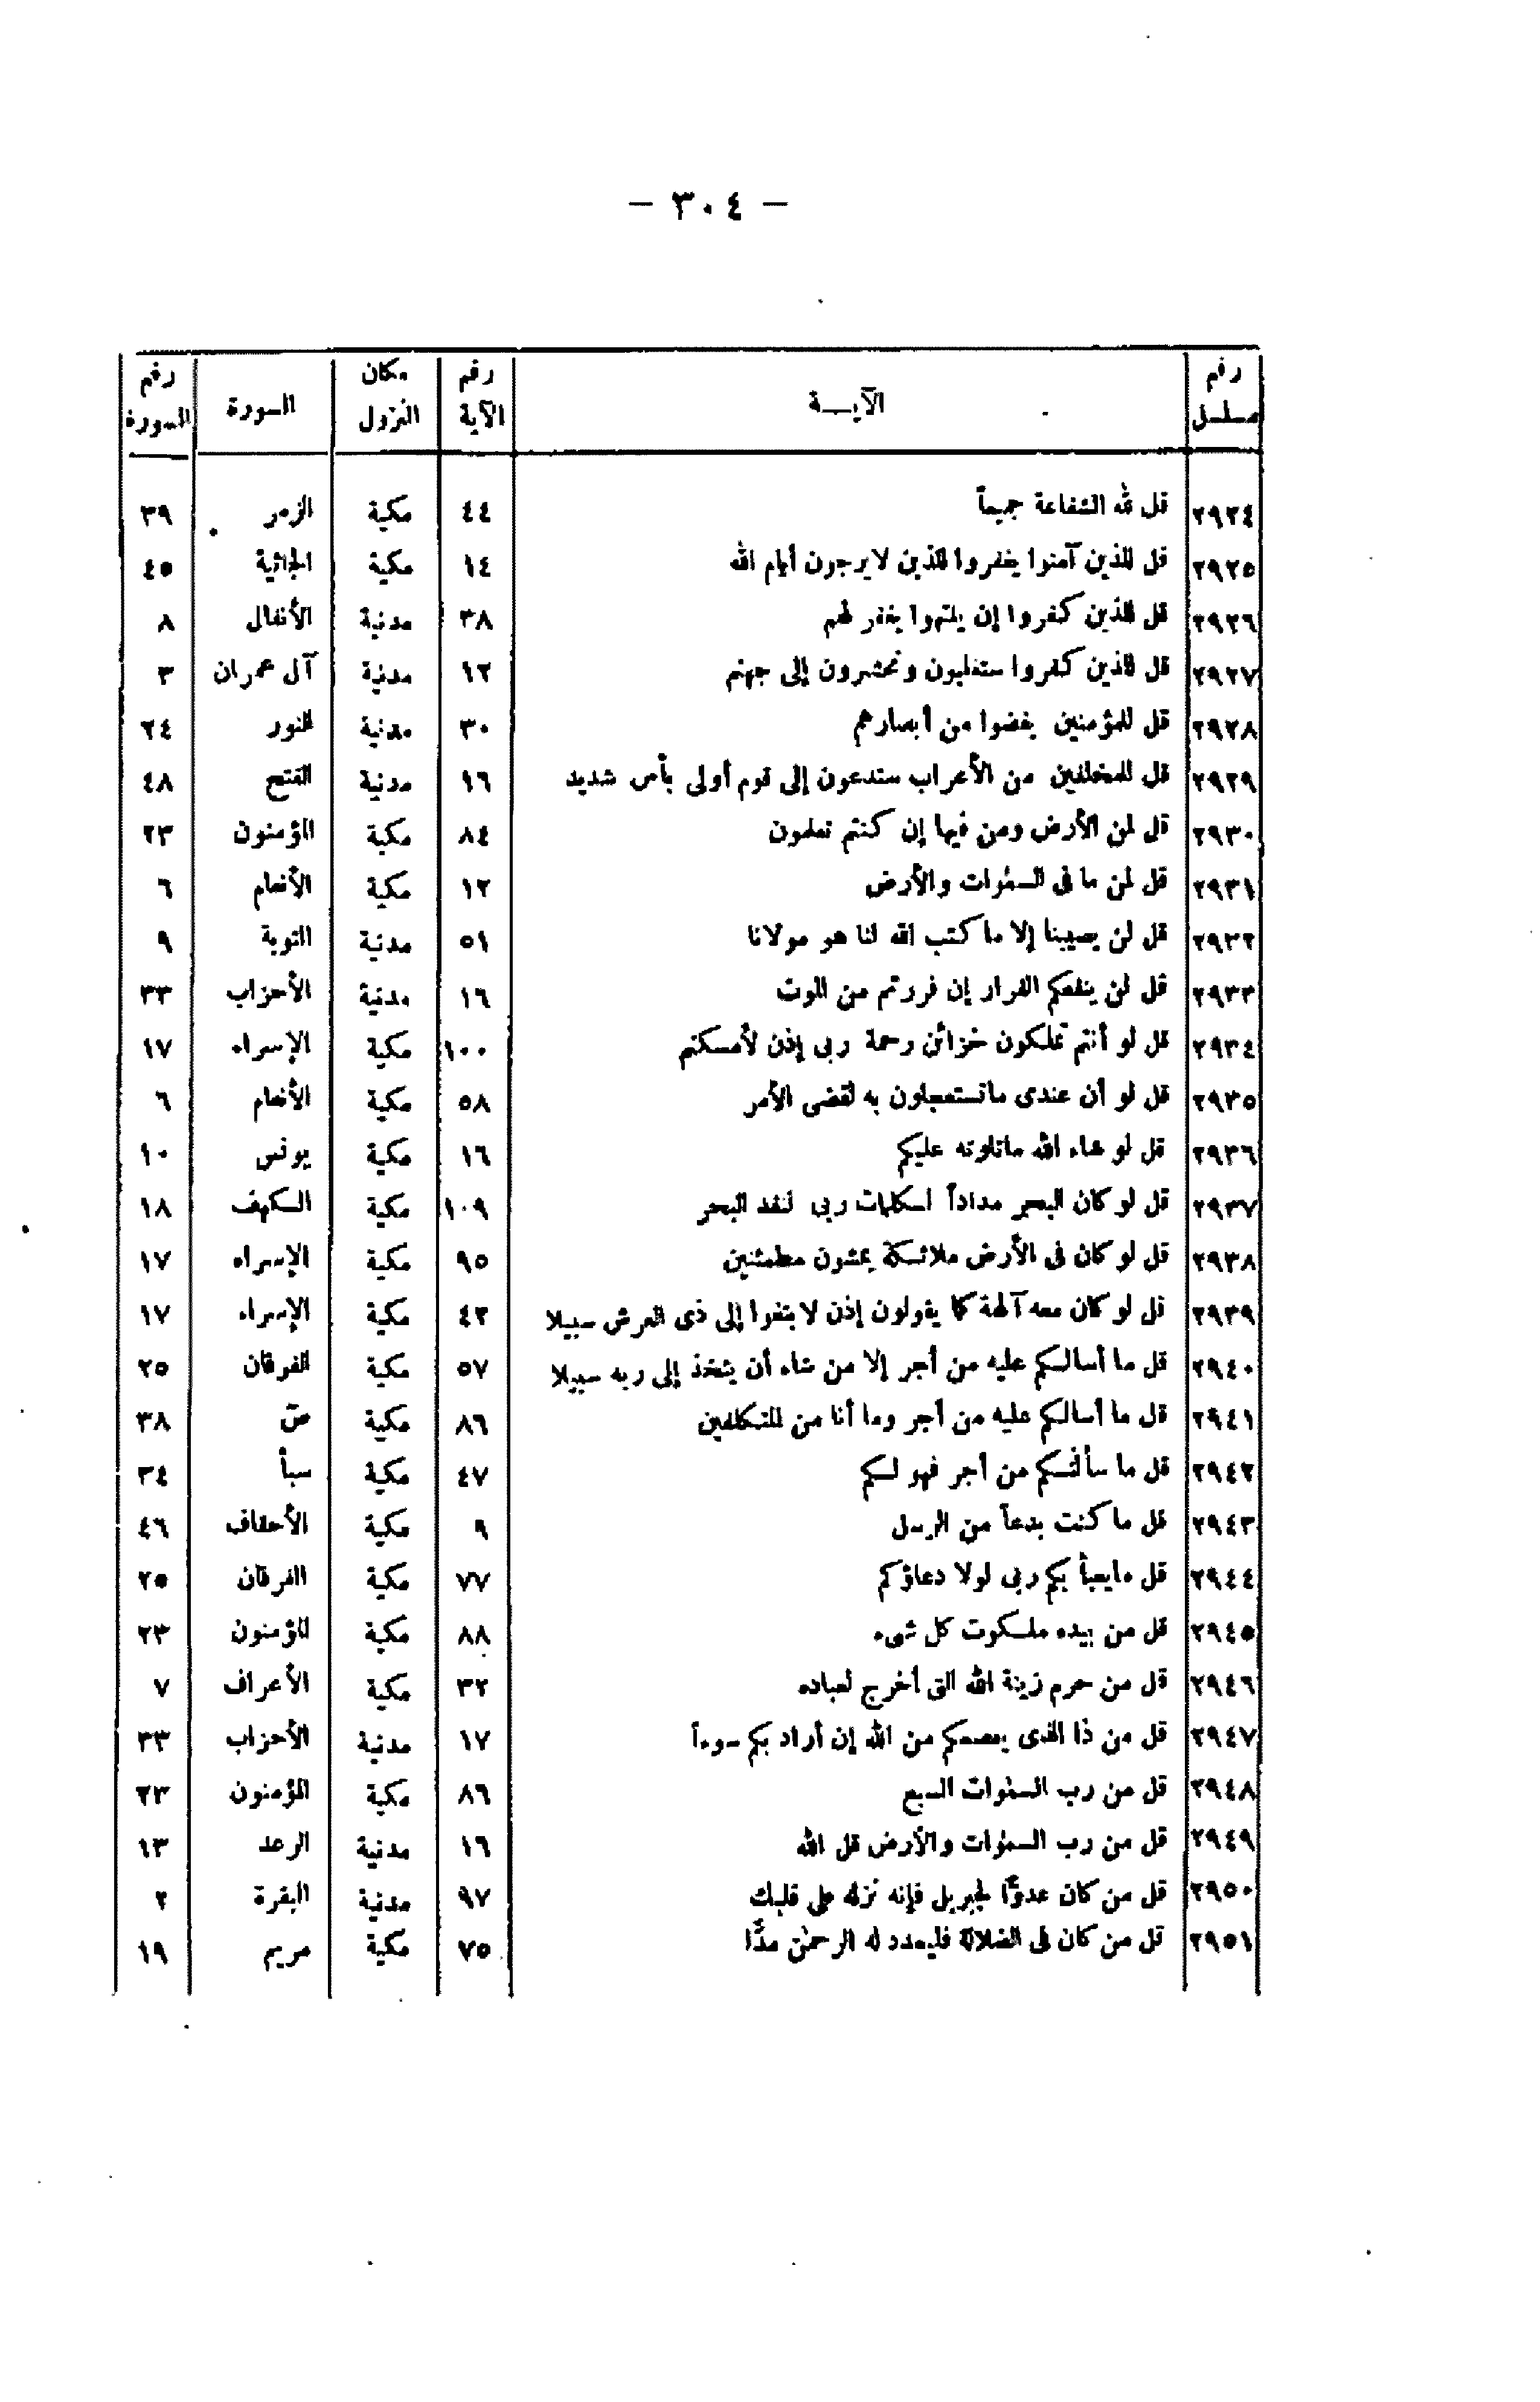 — ٣٠٤ —
رقم مسلسل الآيـــة رقم الآية مكان النزول السورة رقم السورة
٢٩٢٤ قل لله الشفاعة جميعاً ٤٤ مكية الزمر ٣٩
٢٩٢٥ قل للذين آمنوا يغفروا للذين لا يرجون أيام الله ١٤ مكية الجاثية ٤٥
٢٩٢٦ قل للذين كفروا إن ينتهوا يغفر لهم ٣٨ مدنية الأنفال ٨
٢٩٢٧ قل للذين كفروا ستغلبون وتحشرون إلى جهنم ١٢ مدنية آل عمران ٣
٢٩٢٨ قل للمؤمنين يغضوا من أبصارهم ٣٠ مدنية النور ٢٤
٢٩٢٩ قل للمخلفين من الأعراب ستدعون إلى قوم أولى بأس شديد ١٦ مدنية الفتح ٤٨
٢٩٣٠ قل لمن الأرض ومن فيها إن كنتم تعلمون ٨٤ مكية المؤمنون ٢٣
٢٩٣١ قل لمن ما فى السمٰوات والأرض ١٢ مكية الأنعام ٦
٢٩٣٢ قل لن يصيبنا إلا ما كتب الله لنا هو مولانا ٥١ مدنية التوبة ٩
٢٩٣٣ قل لن ينفعكم الفرار إن فررتم من الموت ١٦ مدنية الأحزاب ٣٣
٢٩٣٤ قل لو أنتم تملكون خزائن رحمة ربى إذن لأمسكتم ١٠٠ مكية الإسراء ١٧
٢٩٣٥ قل لو أن عندى ما تستعجلون به لقضى الأمر ٥٨ مكية الأنعام ٦
٢٩٣٦ قل لو شاء الله ما تلوته عليكم ١٦ مكية يونس ١٠
٢٩٣٧ قل لو كان البحر مداداً لكلمات ربى لنفد البحر ١٠٩ مكية الكهف ١٨
٢٩٣٨ قل لو كان فى الأرض ملائكة يمشون مطمئنين ٩٥ مكية الإسراء ١٧
٢٩٣٩ قل لو كان معه آلهة كما يقولون إذن لابتغوا إلى ذى العرش سبيلا ٤٢ مكية الإسراء ١٧
٢٩٤٠ قل ما أسألكم عليه من أجر إلا من شاء أن يتخذ إلى ربه سبيلا ٥٧ مكية الفرقان ٢٥
٢٩٤١ قل ما أسألكم عليه من أجر وما أنا من المتكلفين ٨٦ مكية صّ ٣٨
٢٩٤٢ قل ما سألتكم من أجر فهو لكم ٤٧ مكية سبأ ٣٤
٢٩٤٣ قل ما كنت بدعاً من الرسل ٩ مكية الأحقاف ٤٦
٢٩٤٤ قل ما يعبأ بكم ربى لولا دعاؤكم ٧٧ مكية الفرقان ٢٥
٢٩٤٥ قل من بيده ملكوت كل شىء ٨٨ مكية المؤمنون ٢٣
٢٩٤٦ قل من حرم زينة الله التى أخرج لعباده ٣٢ مكية الأعراف ٧
٢٩٤٧ قل من ذا الذى يعصمكم من الله إن أراد بكم سوءاً ١٧ مدنية الأحزاب ٣٣
٢٩٤٨ قل من رب السمٰوات السبع ٨٦ مكية المؤمنون ٢٣
٢٩٤٩ قل من رب السمٰوات والأرض قل الله ١٦ مدنية الرعد ١٣
٢٩٥٠ قل من كان عدوًّا لجبريل فإنه نزله على قلبك ٩٧ مدنية البقرة ٢
٢٩٥١ قل من كان فى الضلالة فليمدد له الرحمٰن مدًّا ٧٥ مكية مريم ١٩